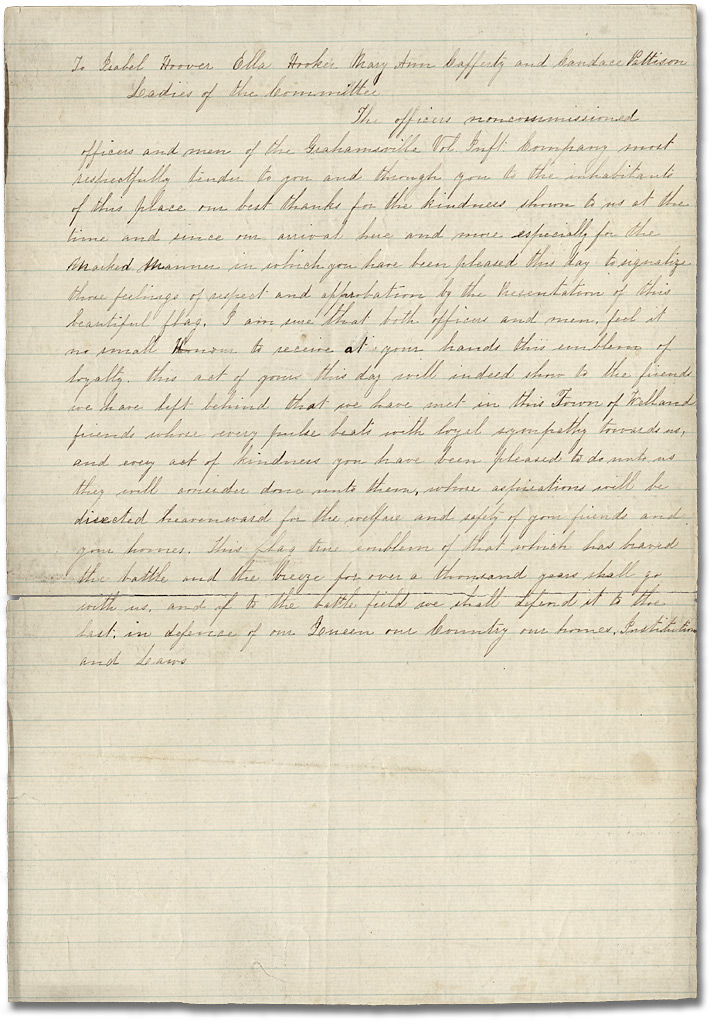 To Isabel Hoover Ella Hooker Mary Ann Cafferty and Candace Pattison
Ladies of the Committee
The officers noncommissioned
officers and men of the Grahamsville Vol. Inft. Company most
respectfully tender to you and through you to the inhabitants
of this place our best thanks for the kindness shown to us at the
time and since our arrival here and more especially for the
Marked Manner in which you have been pleased this day to signalize
those feelings of respect and approbation by the Presentation of this
beautiful flag. I am sure that both officers and men, feel it
no small Honour to receive at your hands this emblem of
loyalty. this act of yours this day will indeed show to the friends
we have left behind that we have met in this Town of Welland
friends whose every pulse beats with loyal sympathy towards us,
and every act of kindness you have been pleased to do unto us
they will consider done unto them, whose aspirations will be
directed heavenward for the welfare and safety of your friends and
your homes. This flag true emblem of that which has braved
the battle and the breeze for over a thousand years shall go
with us, and if to the battle field we shall defend it to the
last, in defence of our Queen our Country our homes, Institution
and Laws